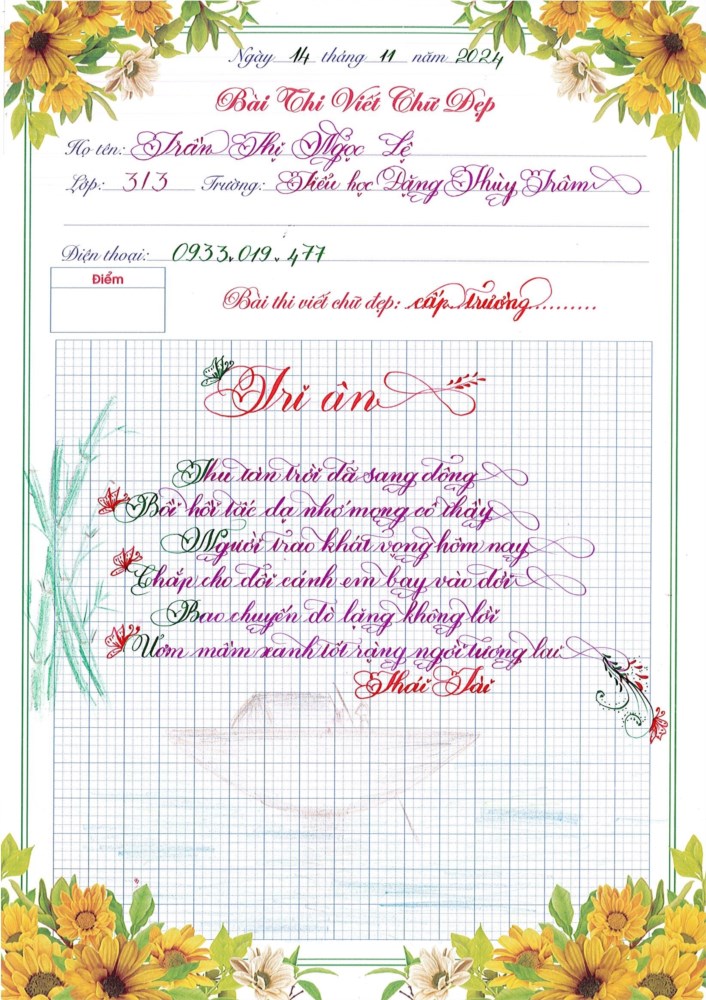 Ngày 14 tháng 11 năm 2024
Bài Thi Viết Chữ Đẹp
Họ tên: Trần Thị Ngọc Lệ
Lớp: 3/3 Trường: Tiểu học Đặng Thùy Trâm
Điện thoại: 0933.019.477
Điểm
Bài thi viết chữ đẹp: cấp trường
Tri ân
Thu tàn trời đã sang đông
Bồi hồi tấc dạ nhớ mong cô thầy
Người trao khát vọng hôm nay
Chắp cho đôi cánh em bay vào đời
Bao chuyến đò lặng không lời
Ươm mầm xanh tốt rạng ngời tương lai
Thái Tài